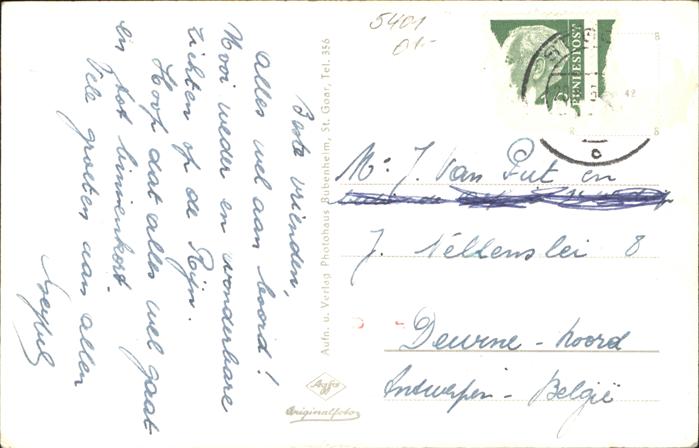 Beste vrienden,
Alles wel aan boord!
Mooi weder en wonderbare
zichten op de Rijn.
Hoop dat alles wel gaat
en tot binnenkort.
Vele groeten aan allen
5401
01-
BUNDESPOST
Mr J. Van Put en
J. Nellenslei 8
Deurne - Noord
Antwerpen - België
Aufn. u. Verlag Photohaus Bubenheim, St. Goar, Tel. 356
Agfa
Originalfoto